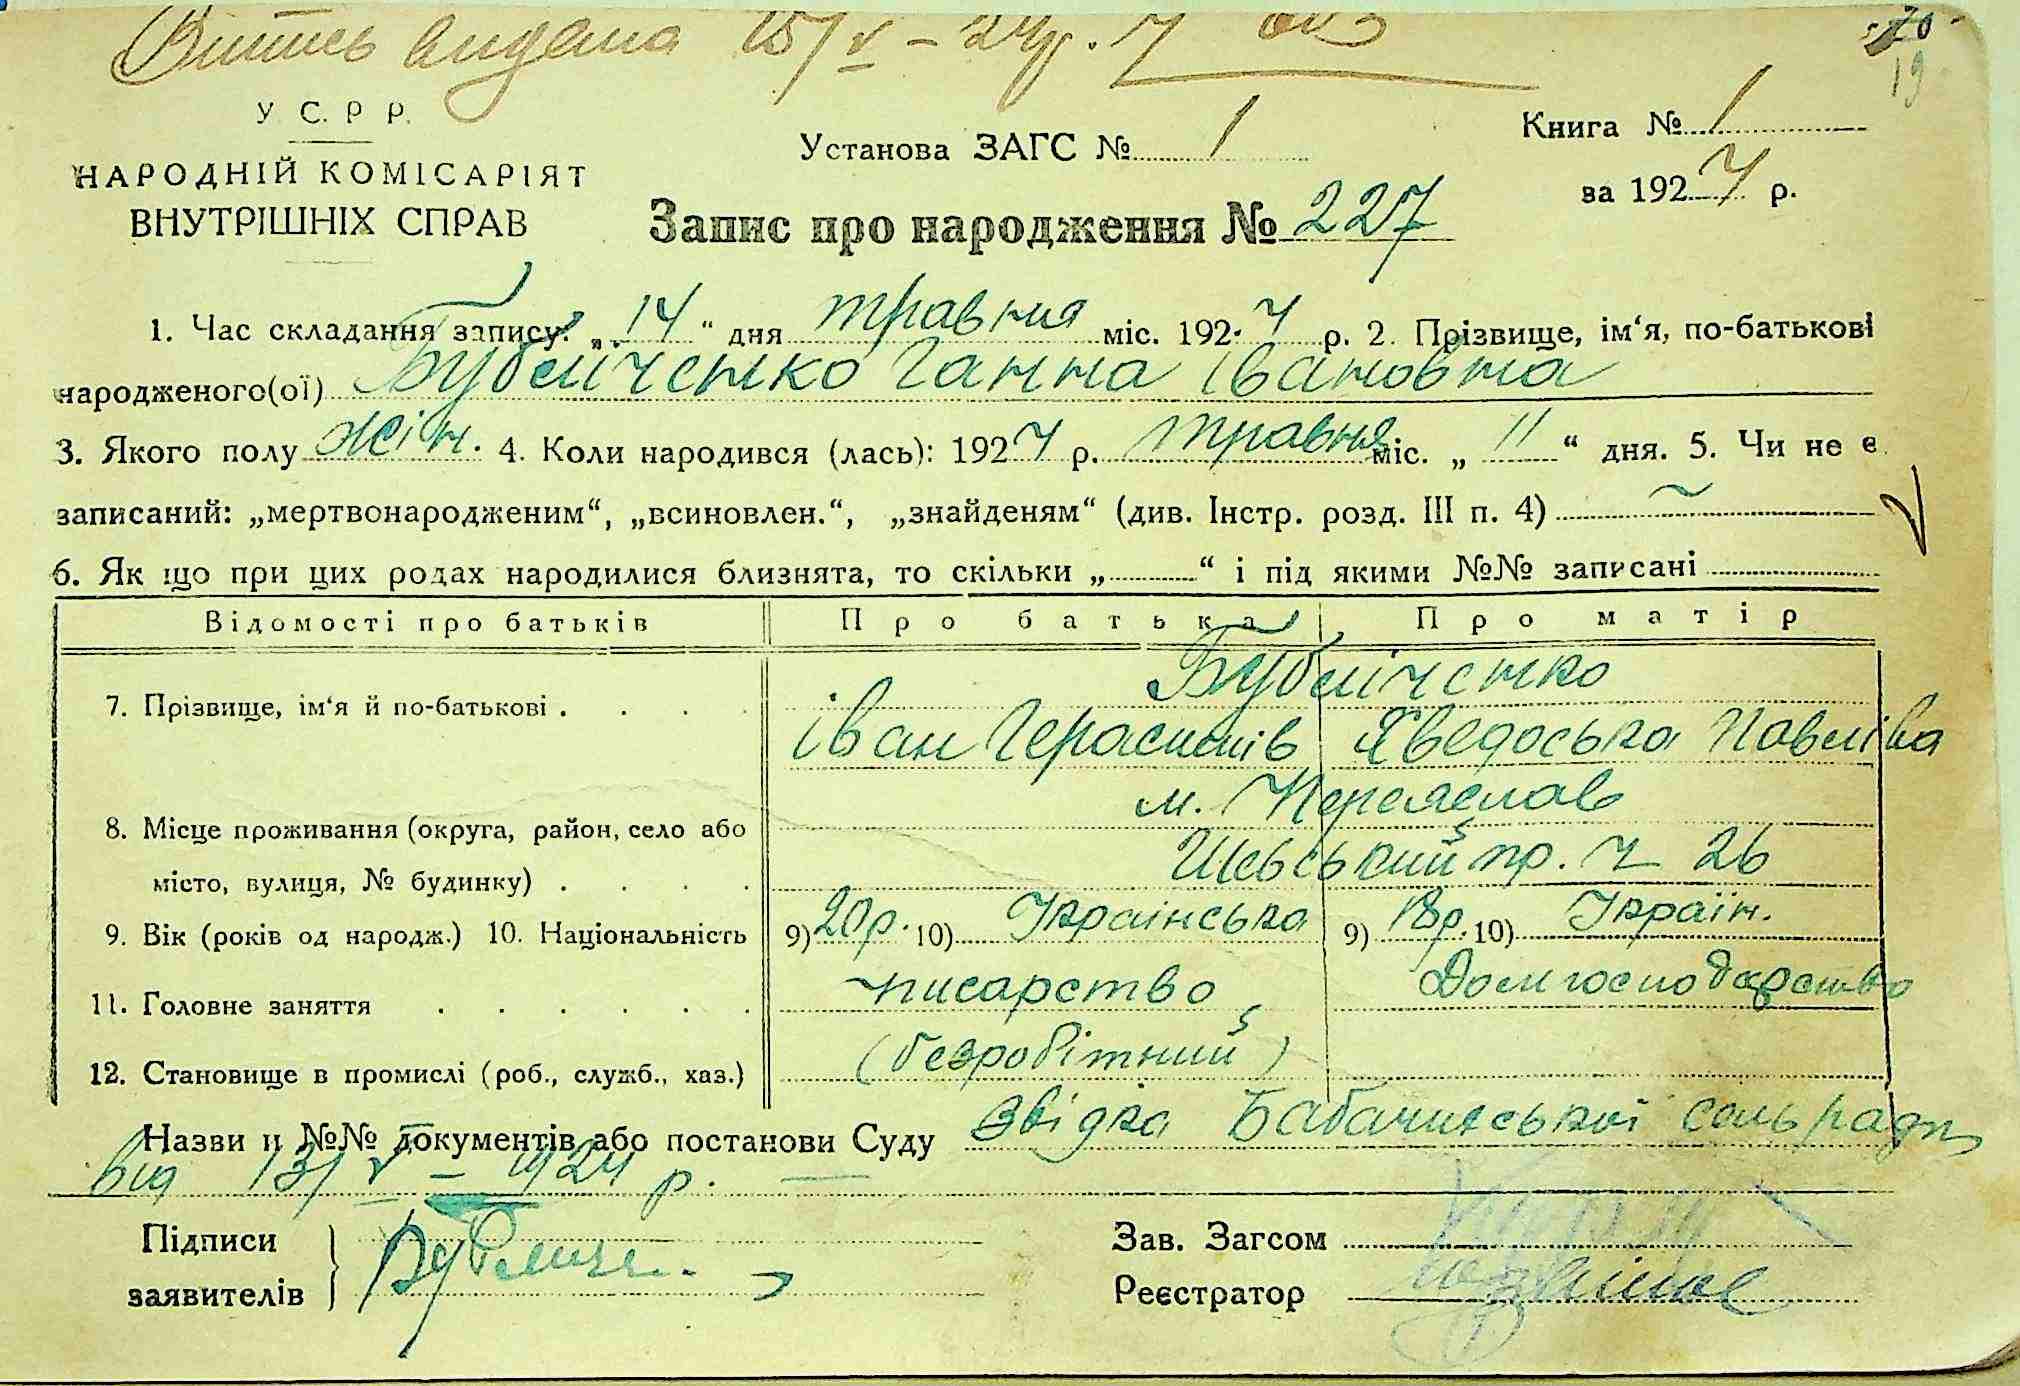 Витпсь видана 15/V – 24 р.
70
19
У. С. Р. Р.
НАРОДНІЙ КОМІСАРІЯТ
ВНУТРІШНІХ СПРАВ
Установа ЗАГС № 1
Книга № 1
за 1924 р.
Запис про народження № 227
1. Час складання запису: „14“ дня травня міс. 1924 р. 2. Прізвище, ім‘я, по-батькові
народженого(ої) Бубліченко Ганна Івановна
3. Якого полу жін. 4. Коли народився (лась): 1924 р. травня міс. „11“ дня. 5. Чи не є
записаний: „мертвонародженим“, „всиновлен.“, „знайденям“ (див. Інстр. розд. III п. 4)
6. Як що при цих родах народилися близнята, то скільки „ “ і під якими №№ записані
Відомості про батьків Про батька Про матір
Бубліченко
7. Прізвище, ім‘я й по-батькові Іван Герасимів Явдоська Павлівна
м. Переяслав
8. Місце проживання (округа, район, село або
місто, вулиця, № будинку) пр. ч 26
9. Вік (років од народж.) 10. Національність 9) 20 р. 10) Українська 9) 18 р. 10) Україн.
11. Головне заняття писарство Домгосподарство
(безробітний)
12. Становище в промислі (роб., служб., хаз.)
Назви й №№ документів або постанови Суду Звідка сільради
від 13/V – 1924 р.
Підписи
заявителів
Бублич
Зав. Загсом
Реєстратор